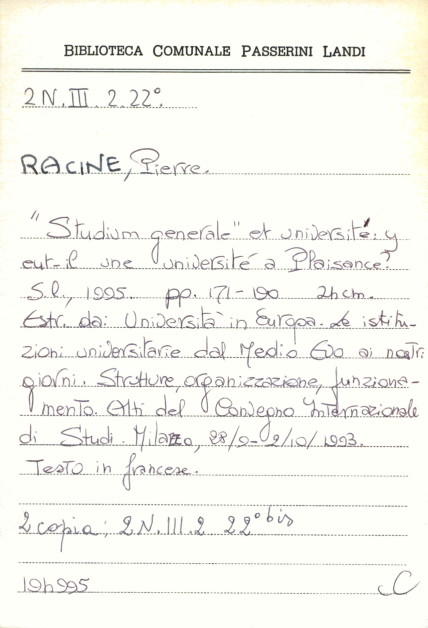 BIBLIOTECA COMUNALE PASSERINI LANDI
2N.III.2.22°.
RACINE, Pierre.
"Studium generale" et université: y
eut-il une université a Plaisance?
S.l., 1995. pp. 171-190 24cm.
Estr. da: Università in Europa. Le istitu-
zioni universitarie dal Medio Evo ai nostri
giorni. Strutture, organizzazione, funziona-
mento. Atti del Convegno Internazionale
di Studi. Milazzo, 28/9-2/10/1993.
Testo in francese.
2 copia: 2N.III.2 22° bis
194995
C